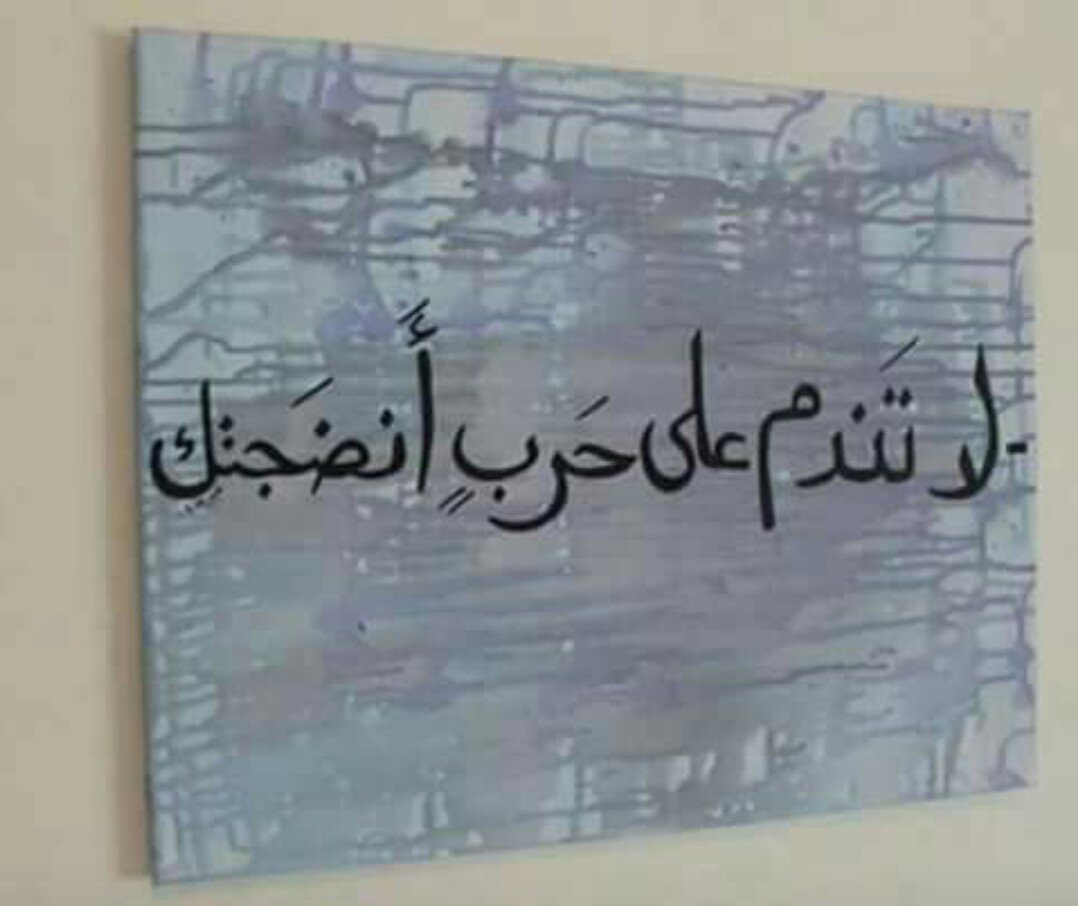 - لا تَندم على حَربٍ أَنضَجتك